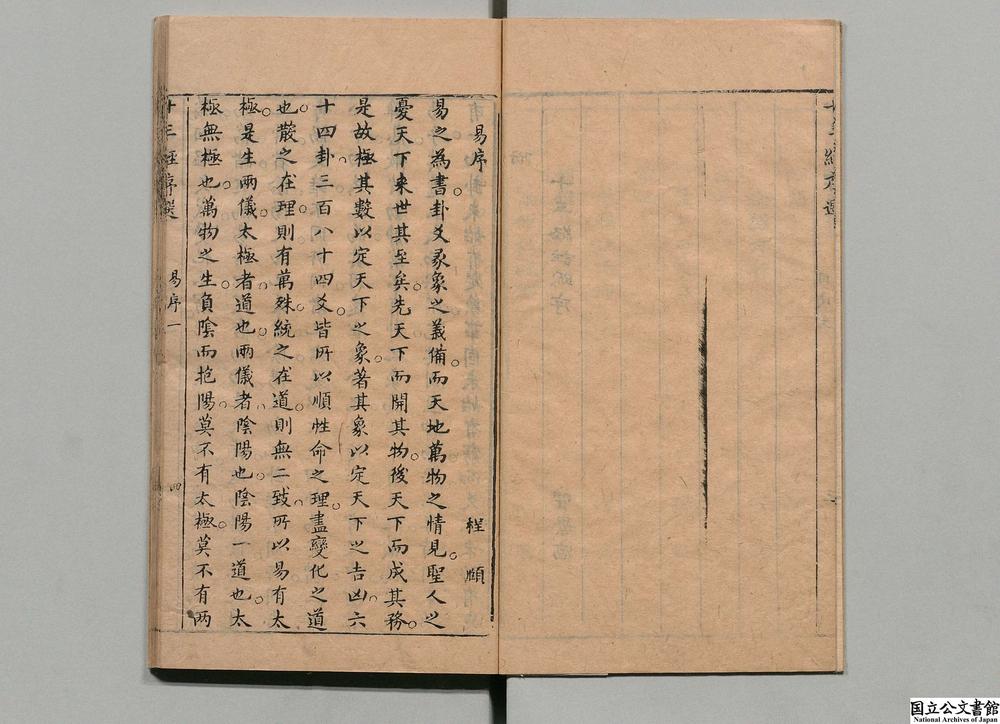 易序
程頤
易之為書卦爻彖象之義備而天地萬物之情見聖人之
憂天下來世其至矣先天下而開其物後天下而成其務
是故極其數以定天下之象著其象以定天下之吉凶六
十四卦三百八十四爻皆所以順性命之理盡變化之道
也散之在理則有萬殊統之在道則無二致所以易有太
極是生兩儀太極者道也兩儀者陰陽也陰陽一道也太
極無極也萬物之生負陰而抱陽莫不有太極莫不有兩
十三經序選
易序一
四
国立公文書館
National Archives of Japan